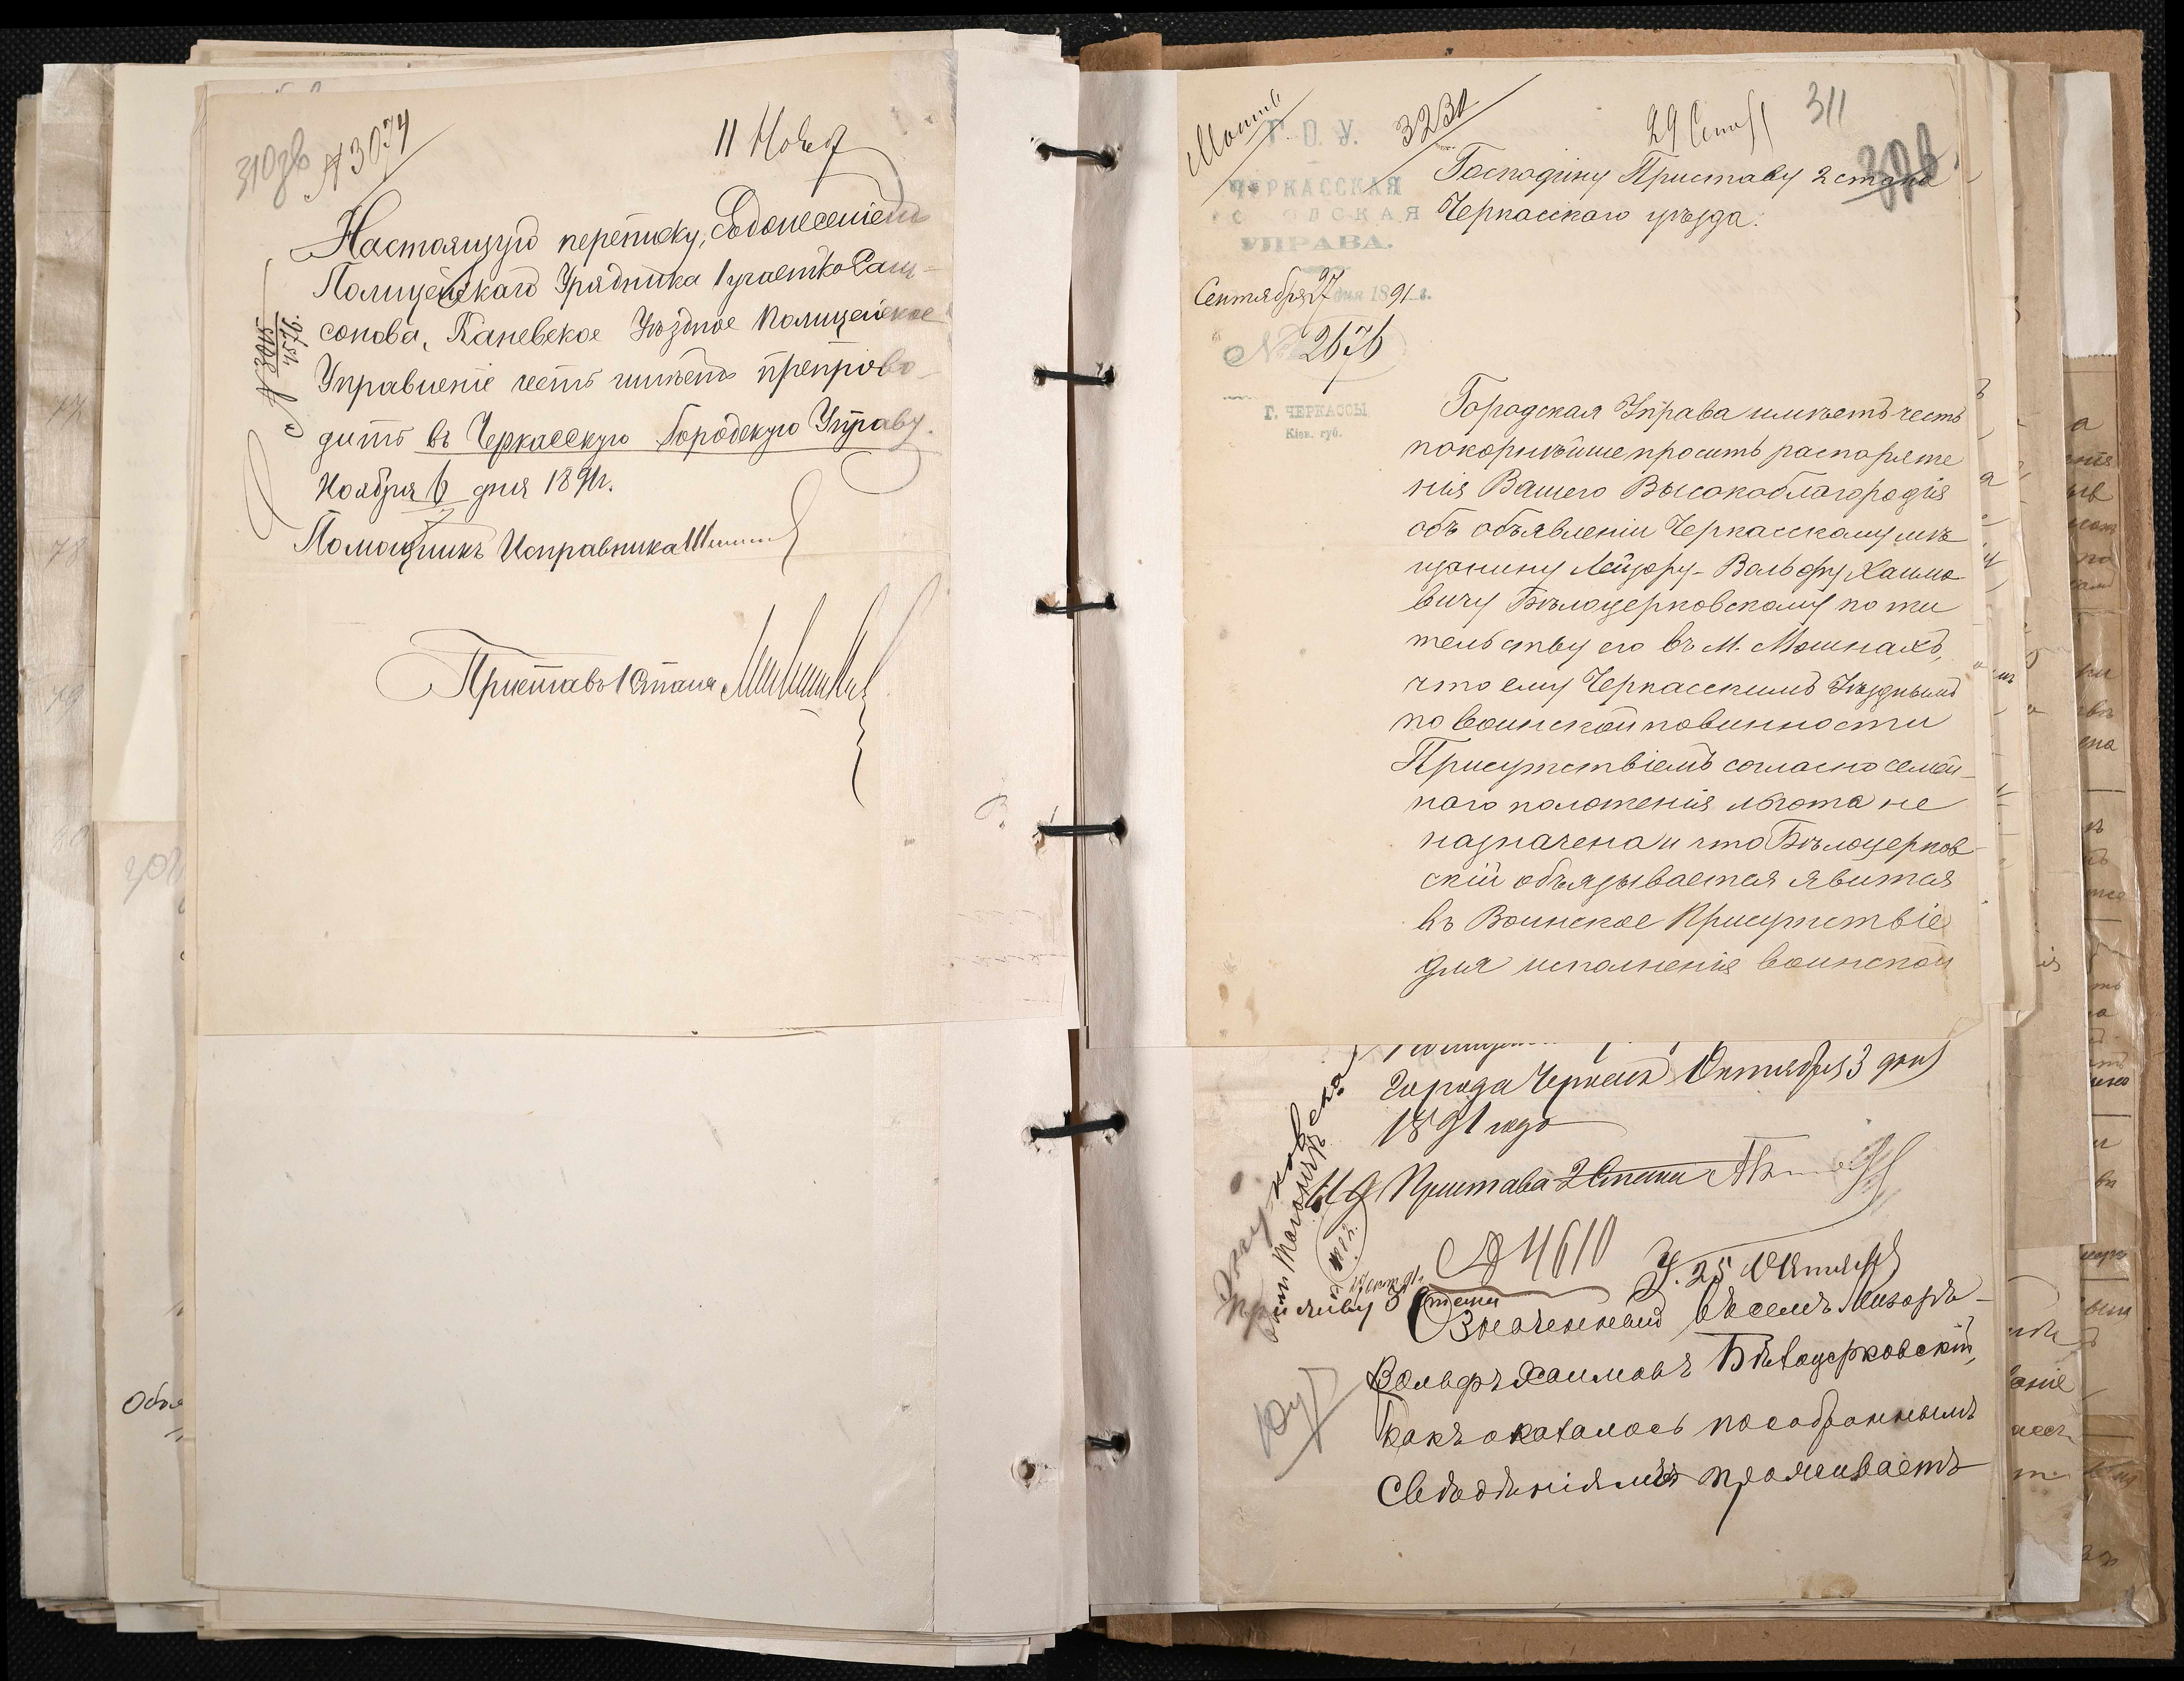 310 зв
№ 3074
11 Нояб
Настоящую переписку, съ донесеніемъ
Полицейскаго Урядника 1 участка Сам-
сонова, Каневское Уѣздное Полицейское
Управленіе честь имѣетъ препрово-
дить въ Черкасскую Городскую Управу.
Ноября 6 дня 1891 г.
Помощникъ Исправника
Приставъ 1 Стана
311
3231
29 Сент
Г. О. У.
ЧЕРКАССКАЯ
ГОРОДСКАЯ
УПРАВА.
Сентября 27 дня 1891 г.
№ 2676
Г. ЧЕРКАССЫ
Кіев. губ.
Господину Приставу 2 стана
Черкасскаго уѣзда.
Городская Управа имѣетъ честь
покорнѣйше просить распоряже
нія Вашего Высокоблагородія
объ объявленіи Черкасскому мѣ
щанину Лейзору-Вольфу Хаимо
вичу Бѣлоцерковскому по жи
тельству его въ М. Мошнахъ,
что ему Черкасскимъ Уѣзднымъ
по воинской повинности
Присутствіемъ согласно семей-
наго положенія льгота не
назначена и что Бѣлоцерков-
скій обязывается явится
въ Воинское Присутствіе
для исполненія воинской
города Черкасъ Октября 3 дня
1891 года
И Д Пристава 2 Стана
№ 4610
25 Октября
Приставу 3 Стана
Означенный Лизоръ-
Вольфъ Хаимовъ Бѣлоцерковскій,
какъ оказалось по собраннымъ
Свѣдѣніямъ проживаетъ